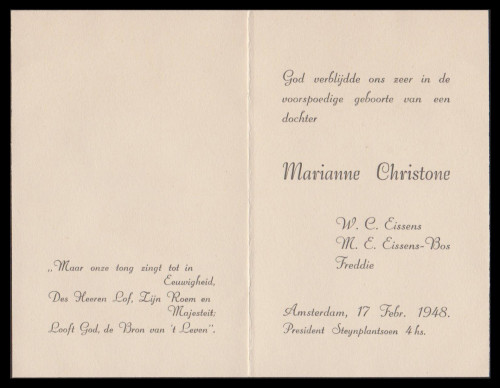 „Maar onze tong zingt tot in
Eeuwigheid,
Des Heeren Lof, Zijn Roem en
Majesteit;
Looft God, de Bron van 't Leven".
God verblijdde ons zeer in de
voorspoedige geboorte van een
dochter
Marianne Christone
W. C. Eissens
M. E. Eissens-Bos
Freddie
Amsterdam, 17 Febr. 1948.
President Steynplantsoen 4 hs.